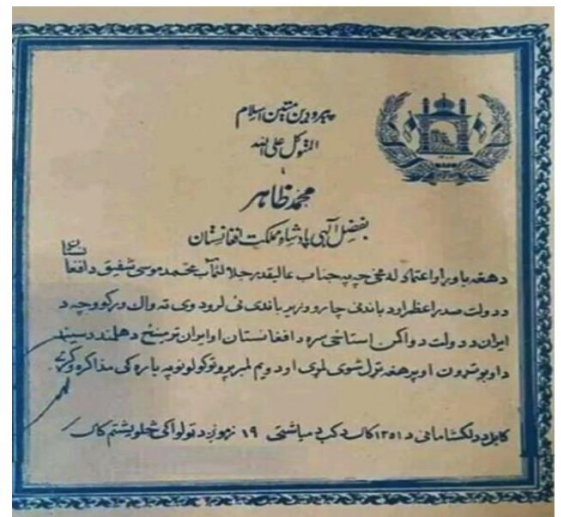 پیرو دین متین اسلام
المتوکل علی الله
محمد ظاهر
بفضل الهی پادشاه مملکت افغانستان
د هغه باور او اعتماد له مخی چه په جناب عالیقدر جلالتمآب محمد موسی شفیق د افغا
د دولت صدراعظم او د باندنی چارو وزیر باندی ئی لرو دوی ته واک ورکوو چه د
ایران د دولت د واکمن استاځی سره د افغانستان او ایران ترمینځ د هلمند د سیند
د اوبو تړون او پر هغه تړل شوی لمړی او دویم لمبر پروتوکولونو په باره کی مذاکره وکړی
کابل د دلکشا مانی د ۱۳۵۱ کال د کب د میاشتی ۱۹ نیټه زمونږ د ټولواکی څلویښتم کال